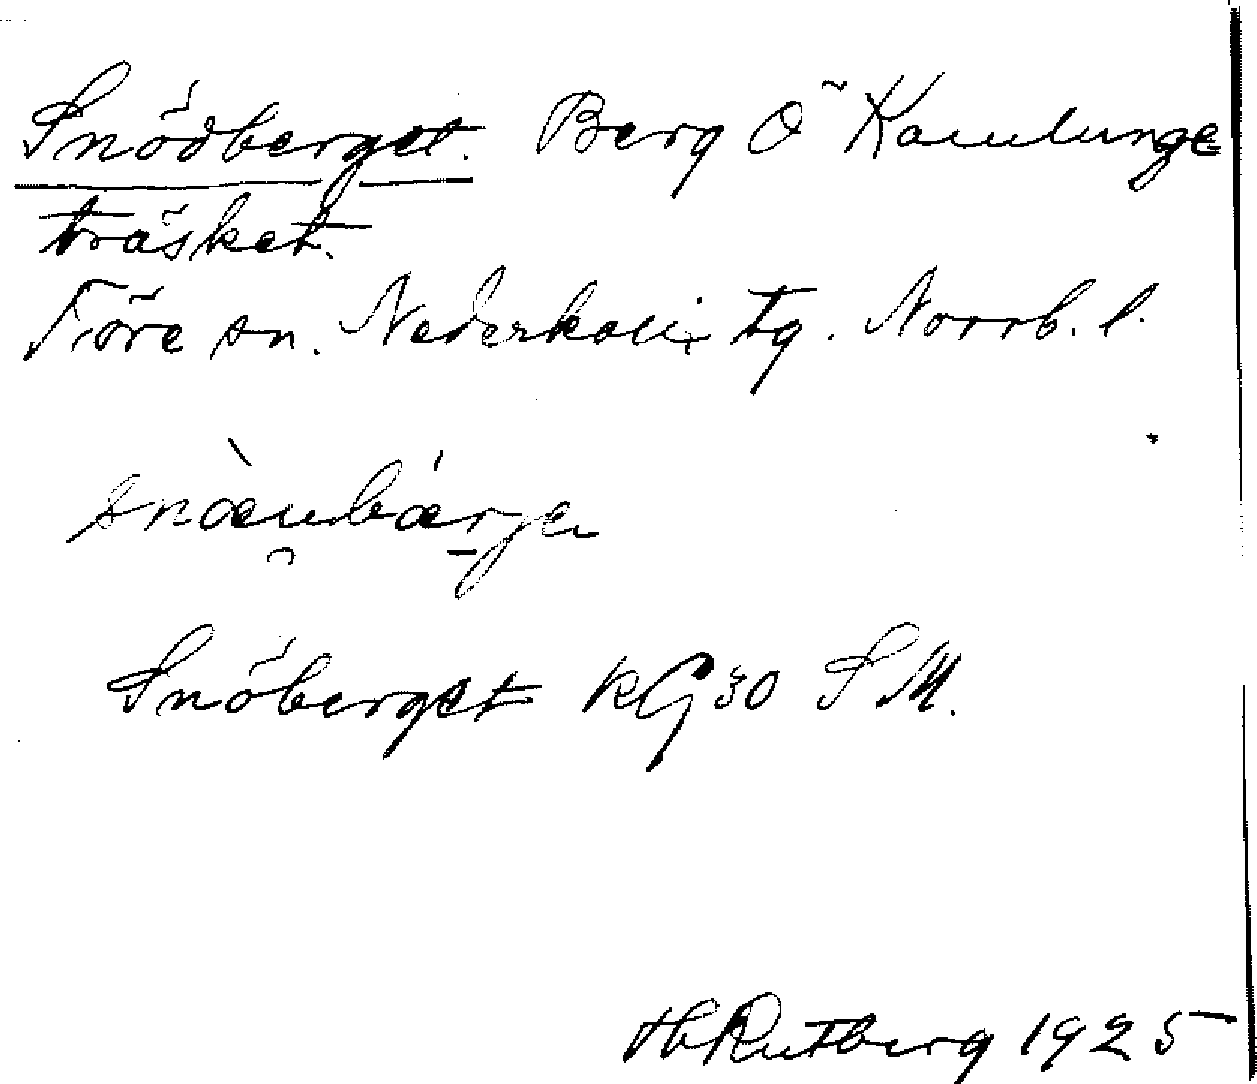 Snödberget. Berg Ö Kamlunge
träsket.
Töre sn. Nederkalix tg. Norrb. l.
Snöberget KG 30 S M.
Hb Rutberg 1925